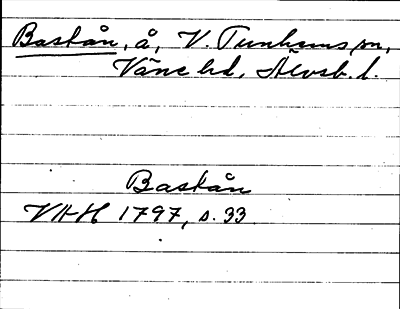 Bastån, å, V. Tunhems sn,
Väne hd, Älvsb. l.
Bastån
VAH 1797, s. 33